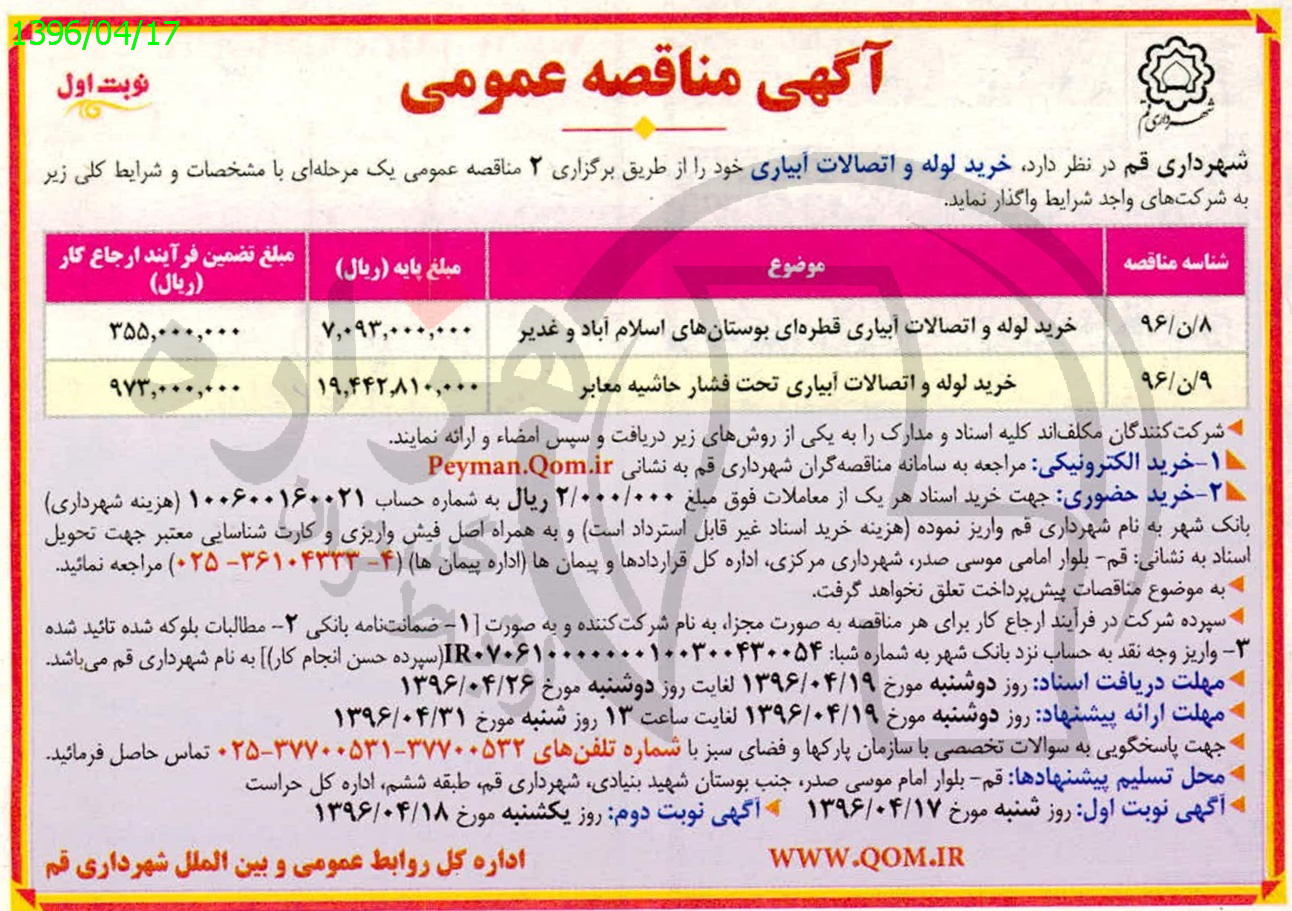 1396/04/17
آگهی مناقصه عمومی
نوبت اول
شهرداری قم
شهرداری قم در نظر دارد، خرید لوله و اتصالات آبیاری خود را از طریق برگزاری ۲ مناقصه عمومی یک مرحله‌ای با مشخصات و شرایط کلی زیر
به شرکت‌های واجد شرایط واگذار نماید.
شناسه مناقصه موضوع مبلغ پایه (ریال) مبلغ تضمین فرآیند ارجاع کار (ریال)
۸/ن/۹۶ خرید لوله و اتصالات آبیاری قطره‌ای بوستان‌های اسلام آباد و غدیر ۷,۰۹۳,۰۰۰,۰۰۰ ۳۵۵,۰۰۰,۰۰۰
۹/ن/۹۶ خرید لوله و اتصالات آبیاری تحت فشار حاشیه معابر ۱۹,۴۴۲,۸۱۰,۰۰۰ ۹۷۳,۰۰۰,۰۰۰
شرکت‌کنندگان مکلف‌اند کلیه اسناد و مدارک را به یکی از روش‌های زیر دریافت و سپس امضاء و ارائه نمایند.
۱-خرید الکترونیکی: مراجعه به سامانه مناقصه‌گران شهرداری قم به نشانی Peyman.Qom.ir
۲-خرید حضوری: جهت خرید اسناد هر یک از معاملات فوق مبلغ ۲/۰۰۰/۰۰۰ ریال به شماره حساب ۱۰۰۶۰۰۱۶۰۰۲۱ (هزینه شهرداری)
بانک شهر به نام شهرداری قم واریز نموده (هزینه خرید اسناد غیر قابل استرداد است) و به همراه اصل فیش واریزی و کارت شناسایی معتبر جهت تحویل
اسناد به نشانی: قم- بلوار امامی موسی صدر، شهرداری مرکزی، اداره کل قراردادها و پیمان ها (اداره پیمان ها) (۴- ۳۶۱۰۴۳۳۳- ۰۲۵) مراجعه نمائید.
به موضوع مناقصات پیش‌پرداخت تعلق نخواهد گرفت.
سپرده شرکت در فرآیند ارجاع کار برای هر مناقصه به صورت مجزا، به نام شرکت‌کننده و به صورت [۱- ضمانت‌نامه بانکی ۲- مطالبات بلوکه شده تائید شده
۳- واریز وجه نقد به حساب نزد بانک شهر به شماره شبا: IR۰۷۰۶۱۰۰۰۰۰۰۰۰۱۰۰۳۰۰۴۳۰۰۵۴(سپرده حسن انجام کار)] به نام شهرداری قم می‌باشد.
مهلت دریافت اسناد: روز دوشنبه مورخ ۱۳۹۶/۰۴/۱۹ لغایت روز دوشنبه مورخ ۱۳۹۶/۰۴/۲۶
مهلت ارائه پیشنهاد: روز دوشنبه مورخ ۱۳۹۶/۰۴/۱۹ لغایت ساعت ۱۳ روز شنبه مورخ ۱۳۹۶/۰۴/۳۱
جهت پاسخگویی به سوالات تخصصی با سازمان پارکها و فضای سبز با شماره تلفن‌های ۳۷۷۰۰۵۳۲-۳۷۷۰۰۵۳۱-۰۲۵ تماس حاصل فرمائید.
محل تسلیم پیشنهادها: قم- بلوار امام موسی صدر، جنب بوستان شهید بنیادی، شهرداری قم، طبقه ششم، اداره کل حراست
آگهی نوبت اول: روز شنبه مورخ ۱۳۹۶/۰۴/۱۷ آگهی نوبت دوم: روز یکشنبه مورخ ۱۳۹۶/۰۴/۱۸
WWW.QOM.IR
اداره کل روابط عمومی و بین الملل شهرداری قم
هزاره